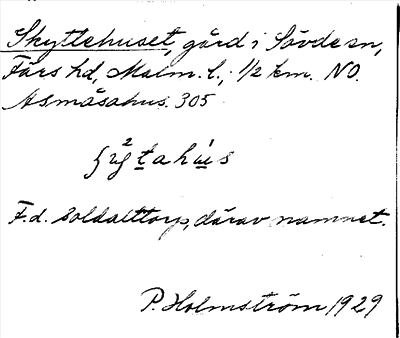 Skyttehuset, gård i Sövde sn,
Färs hd, Malm. l., 1/2 km. NO.
Åsmåsahus. 305
F.d. soldattorp, därav namnet.
P. Holmström 1929